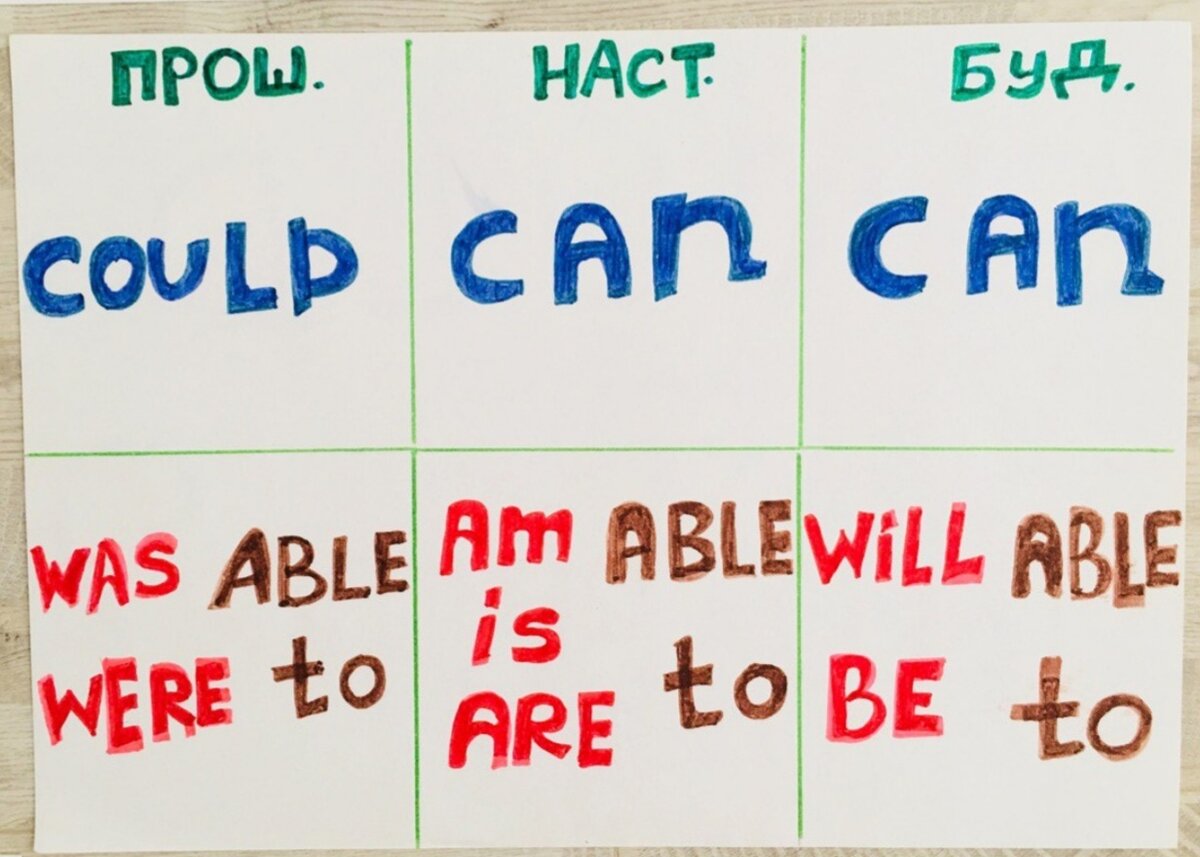 ПРОШ. НАСТ. БУД.
COULD CAN CAN
WAS ABLE
WERE to
Am ABLE
is
ARE to
WiLL ABLE
BE to